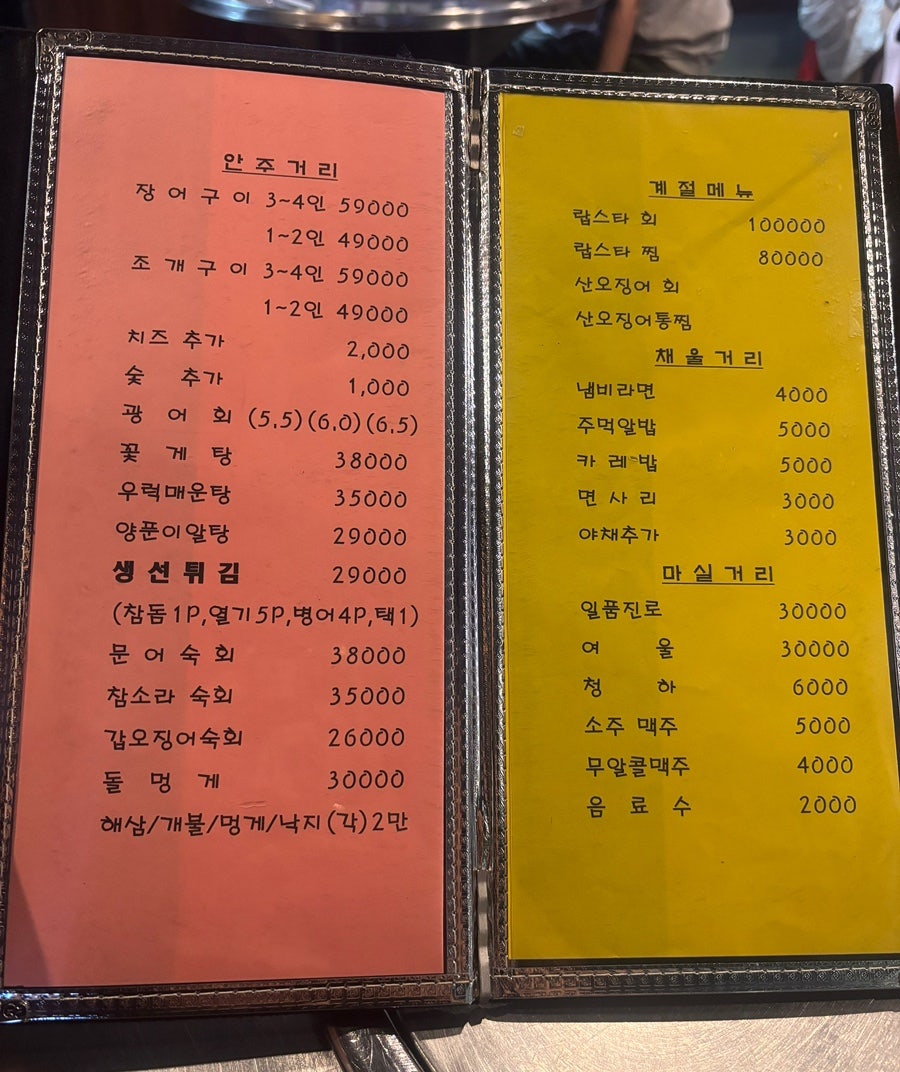 안주거리
장어구이 3~4인 59000
1~2인 49000
조개구이 3~4인 59000
1~2인 49000
치즈 추가 2,000
숯 추가 1,000
광어회 (5.5)(6.0)(6.5)
꽃게탕 38000
우럭매운탕 35000
양푼이알탕 29000
생선튀김 29000
(참돔1P,열기5P,병어4P,택1)
문어숙회 38000
참소라 숙회 35000
갑오징어숙회 26000
돌멍게 30000
해삼/개불/멍게/낙지(각)2만
계절메뉴
랍스타 회 100000
랍스타 찜 80000
산오징어 회
산오징어통찜
채울거리
냄비라면 4000
주먹알밥 5000
카레밥 5000
면사리 3000
야채추가 3000
마실거리
일품진로 30000
여울 30000
청하 6000
소주 맥주 5000
무알콜맥주 4000
음료수 2000